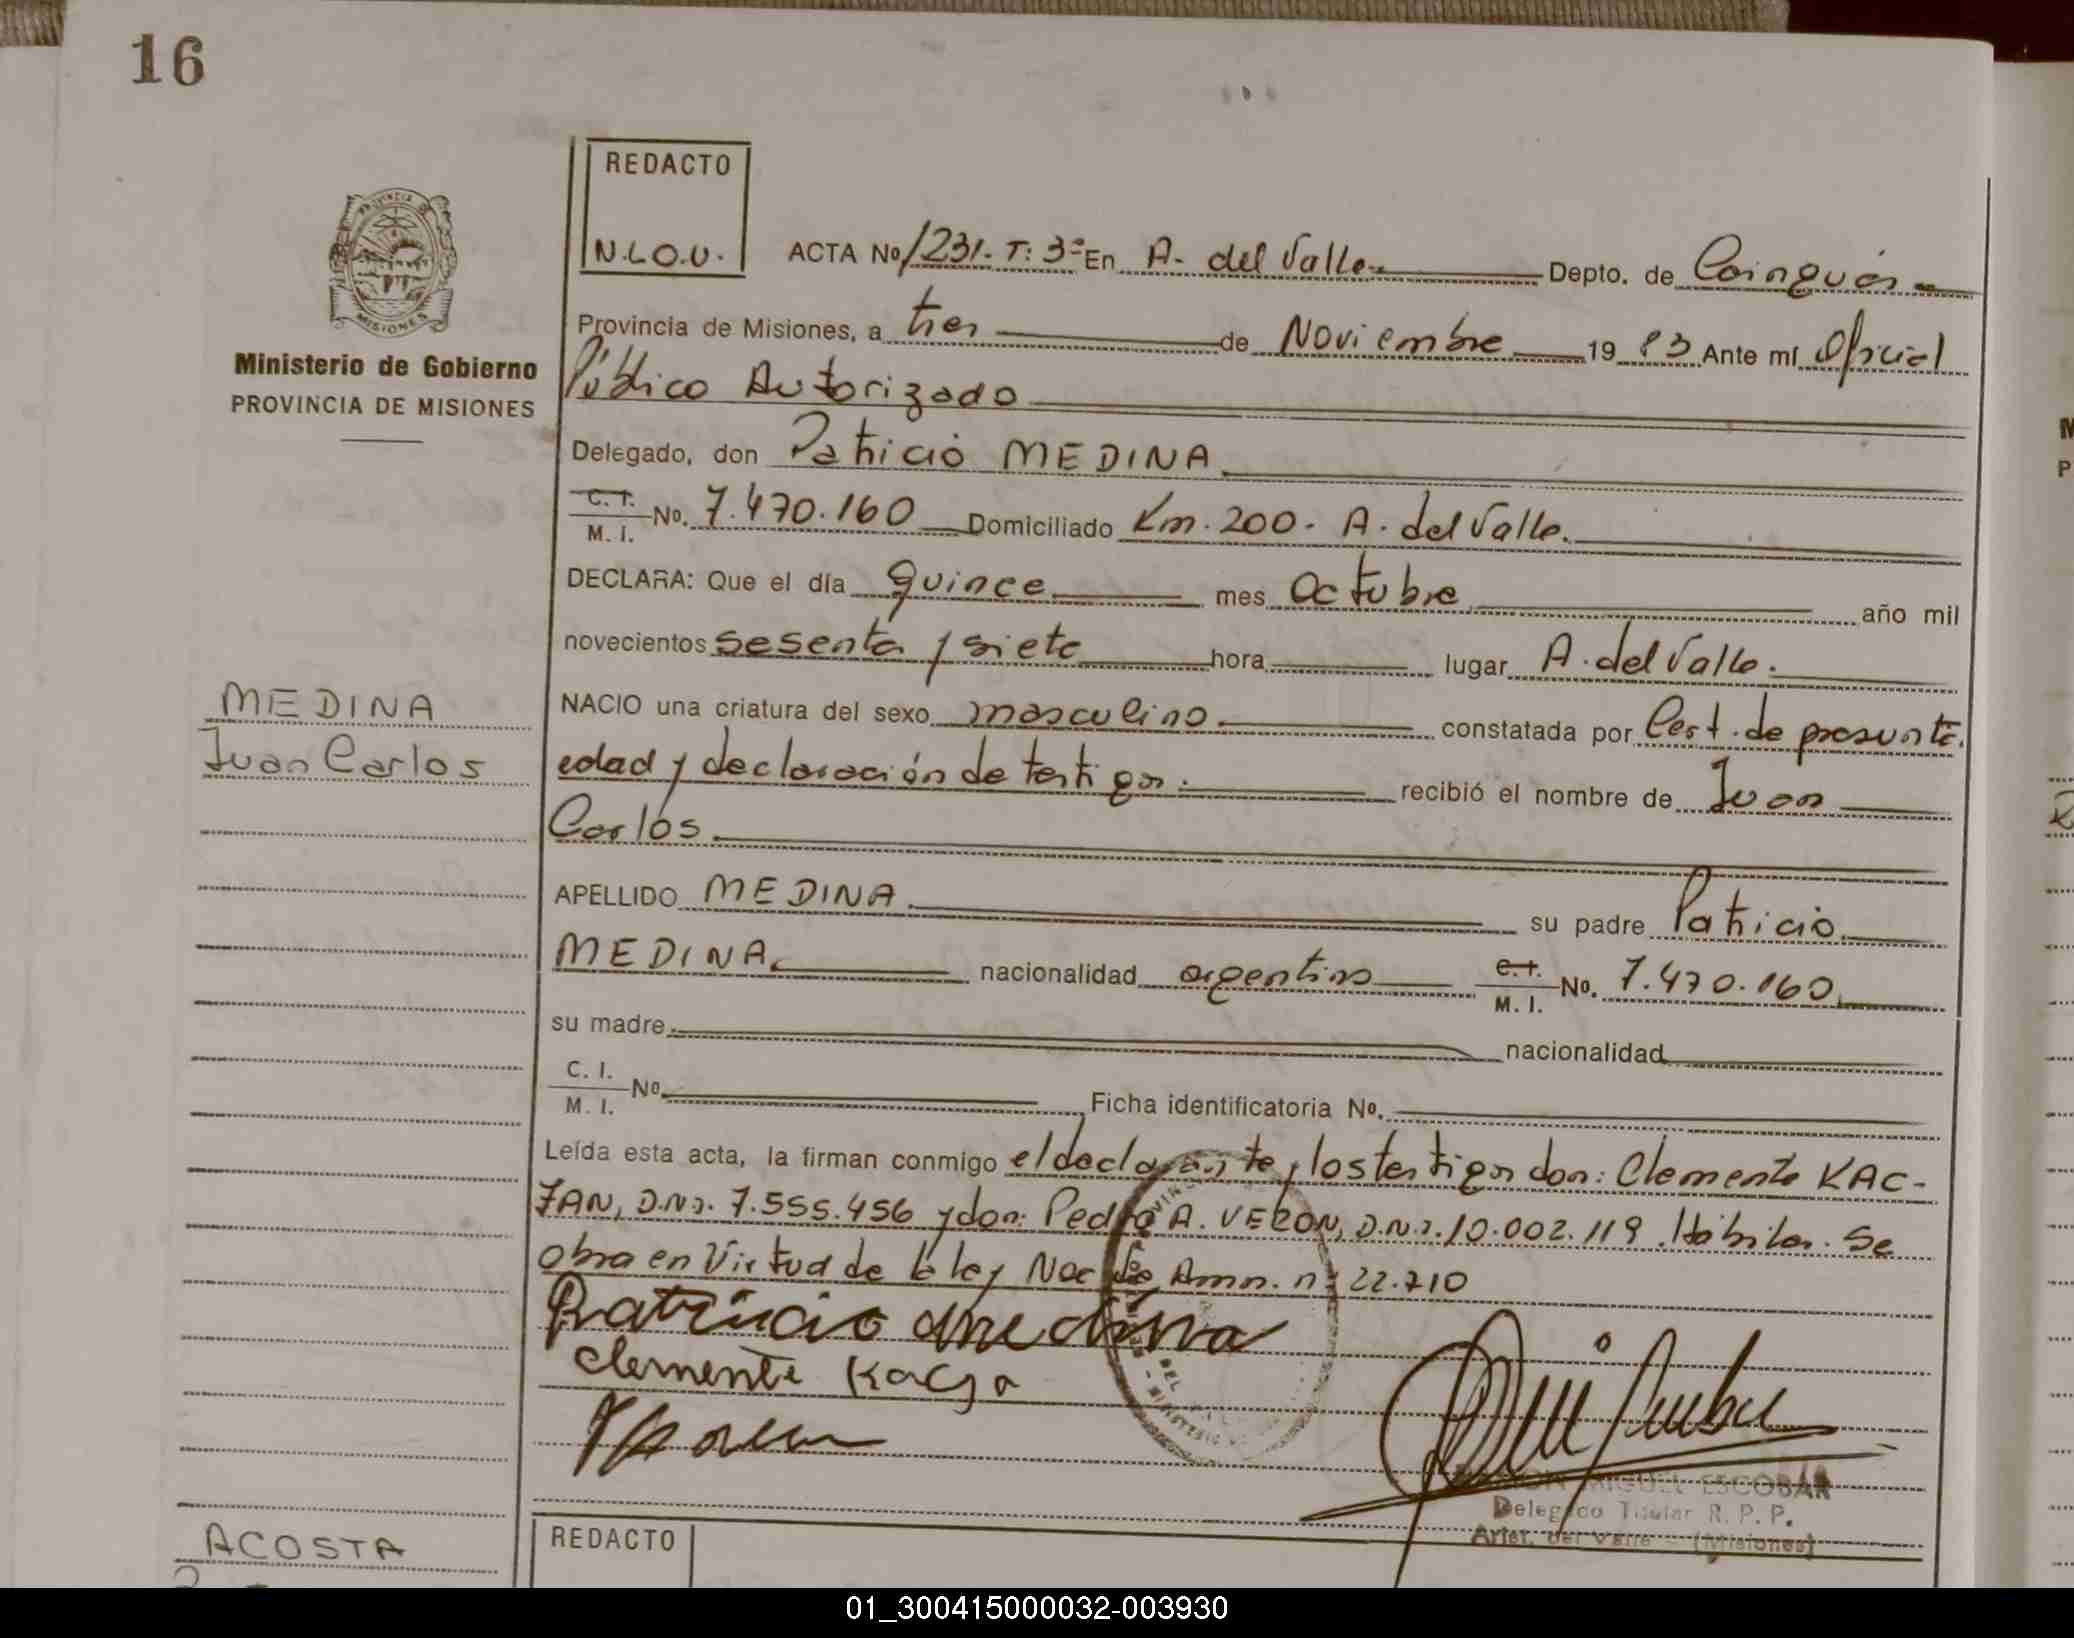 16
REDACTO
N.L.O.U.
ACTA No 1231. T: 3º En A. del Valle. Depto. de Cainguás
Provincia de Misiones, a tres de Noviembre 19 83 Ante mí Oficial
Público Autorizado
PROVINCIA DE
MISIONES
Ministerio de Gobierno
PROVINCIA DE MISIONES
Delegado, don Patricio MEDINA
C. I. M. I. No. 7.470.160 Domiciliado Km. 200. A. del Valle.
DECLARA: Que el día quince mes octubre año mil
novecientos sesenta y siete hora lugar A. del Valle.
MEDINA
Juan Carlos
NACIO una criatura del sexo masculino constatada por Cert. de presunta
edad y declaración de testigos. recibió el nombre de Juan
Carlos
APELLIDO MEDINA su padre Patricio
MEDINA. nacionalidad argentino C. I. M. I. No. 7.470.160
su madre nacionalidad
C. I. M. I. No. Ficha identificatoria No.
Leída esta acta, la firman conmigo el declarante y los testigos don: Clemente KAC-
ZAN, D.N.I. 7.555.456 y don: Pedro A. VERON, D.N.I. 10.002.119. Hábiles. Se
obra en Virtud de la ley Nac. de Amn. nº 22.710
Patricio medina
clemente Kacza
RAMON MIGUEL ESCOBAR
Delegado Titular R. P. P.
Arist. del Valle - (Misiones)
ACOSTA
REDACTO
01_300415000032-003930